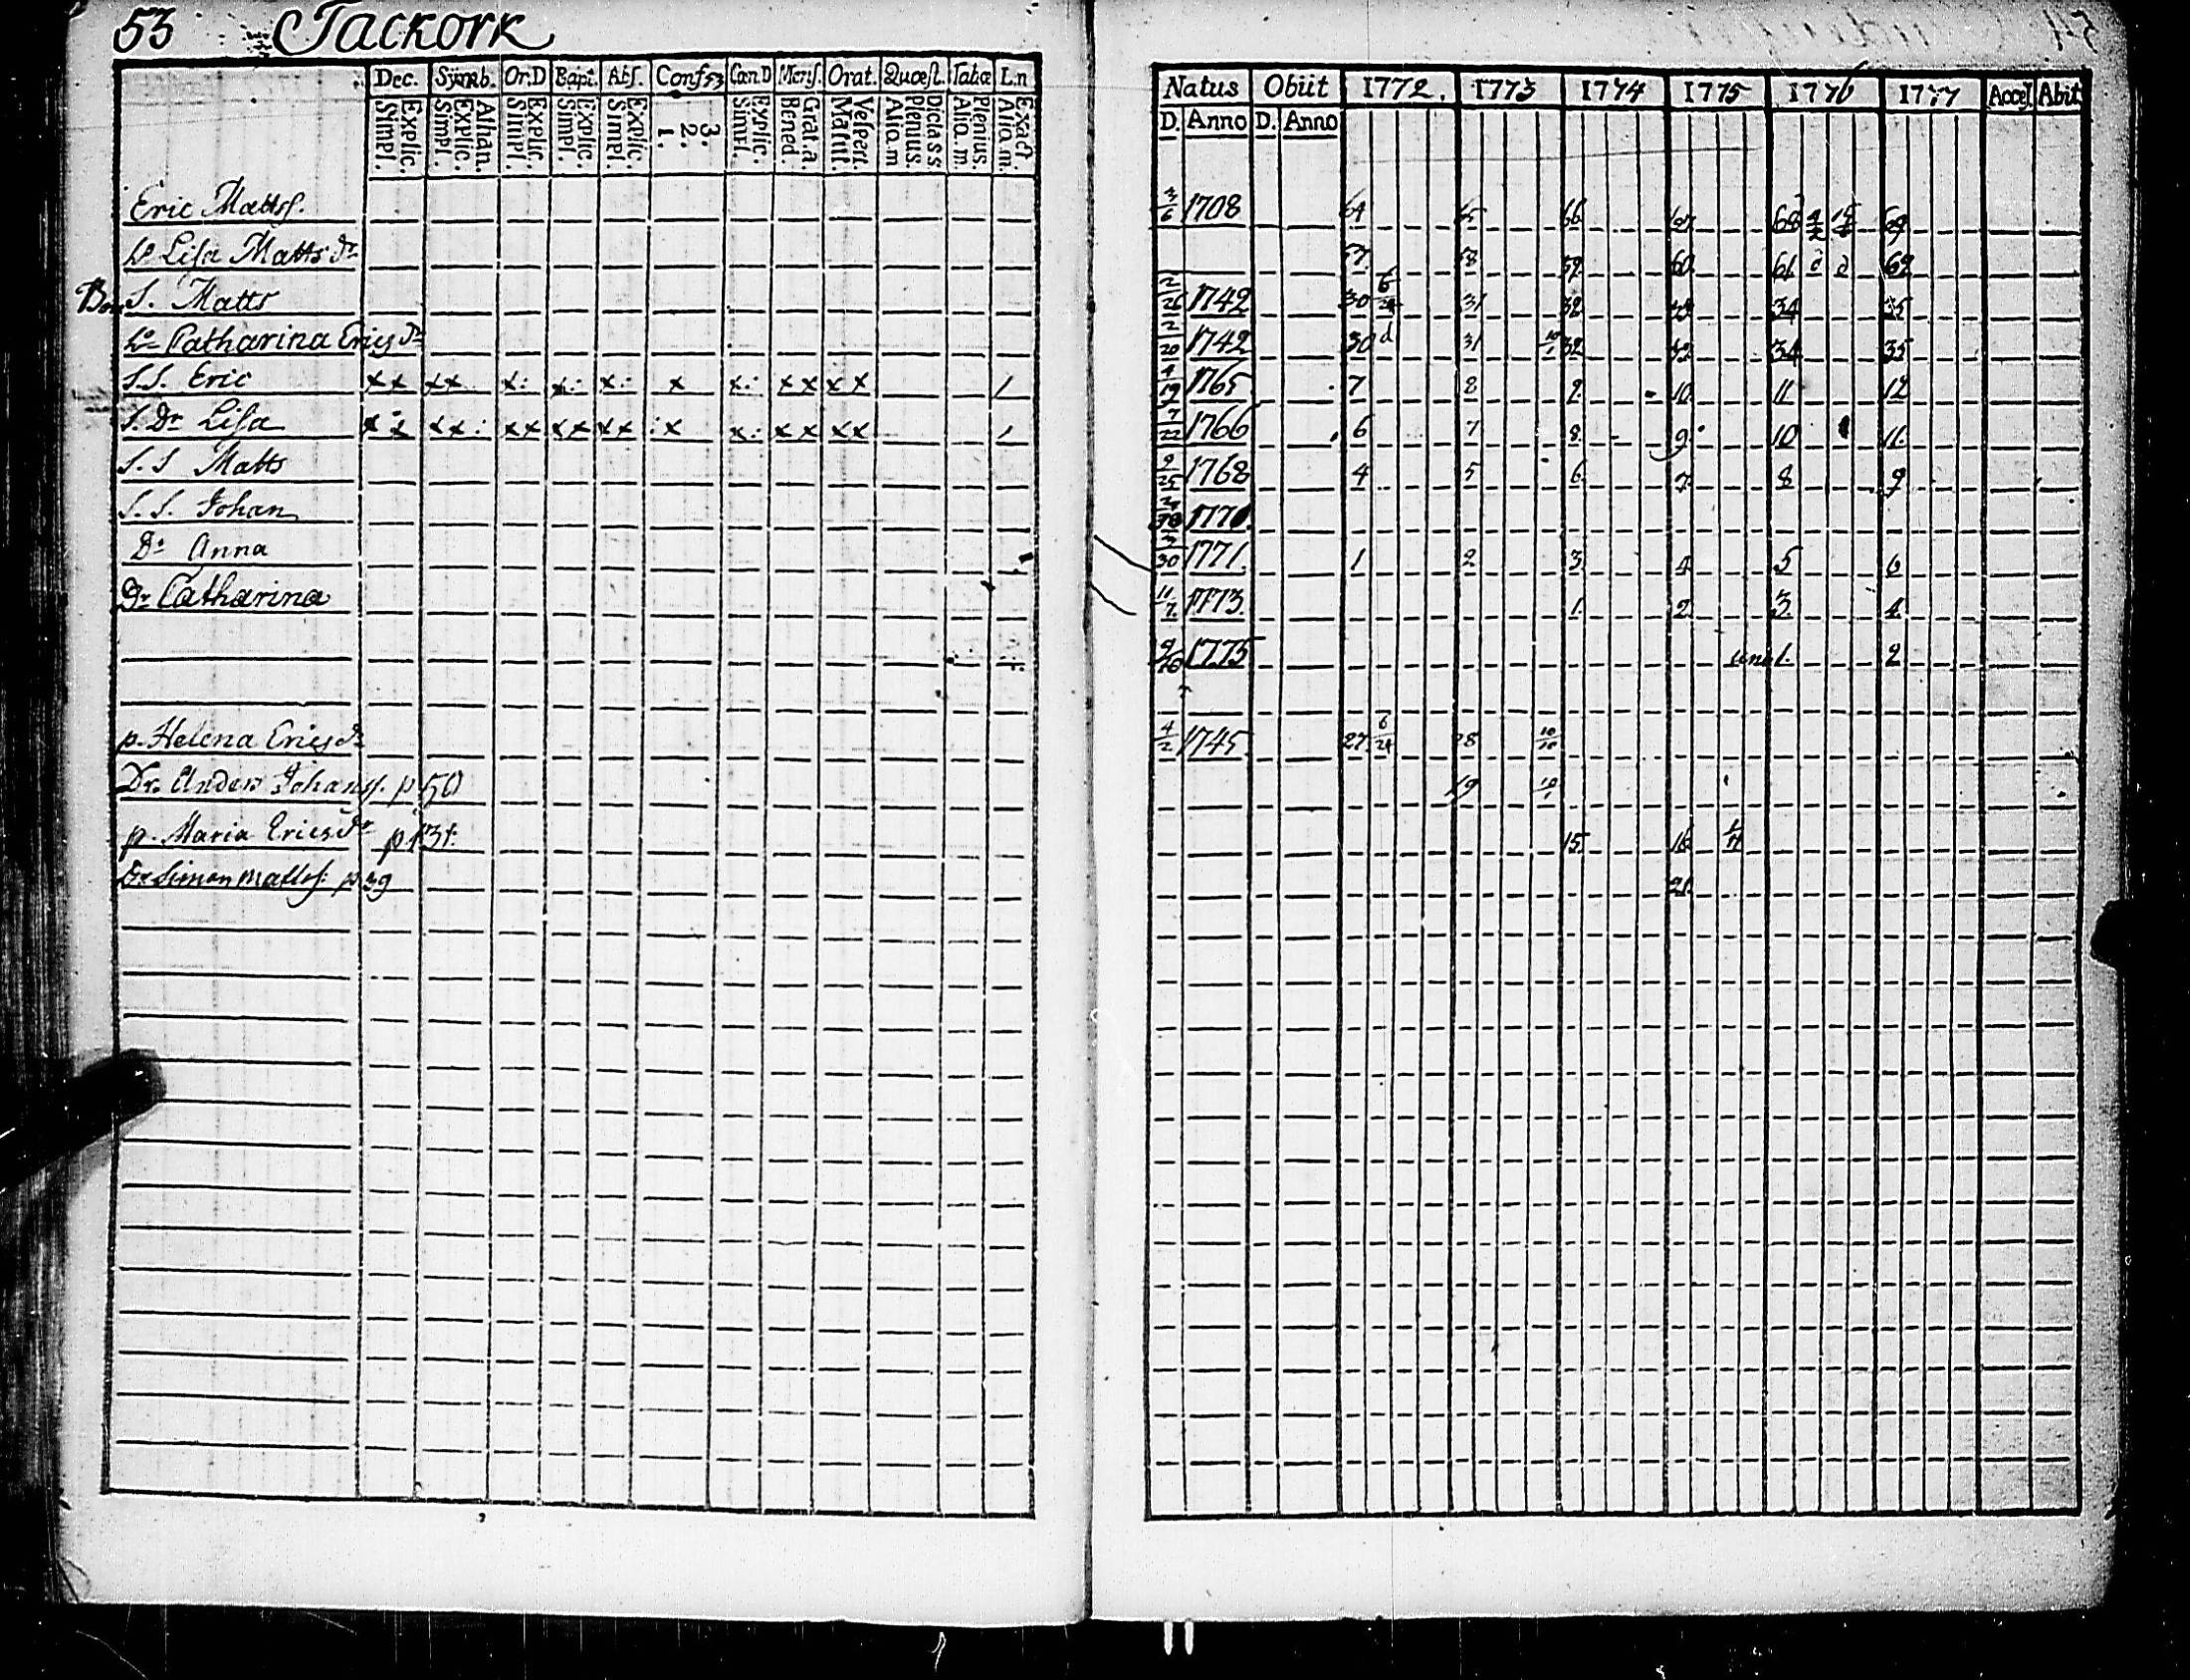 53 Tackork
Dec. Symb. Or.D Bapt. Abſ. Confes Can D Menſ. Orat. Quœſt. Tabœ L.n
Explic. Simpl. Athan. Explic. Simpl. Explic. Simpl. Explic. Simpl. Explic. Simpl. 3. 2. 1. Explic. Simpl. Grat.a. Bened. Veſpert. Matut. Dictass Plenius. Alio.m Plenius. Alio.m. Exact. Alio.m.
Eric Matts.
Lisa Matts dr
Bon S. Matts
Catharina Erics dr
S.S. Eric x x x x x: x: x: x x: x x x x /
S. Dr Lisa x x x x: x x x x x x :x x: x x x x /
S. S Matts
S. S. Johan
Dr Anna
Dr Catharina
p. Helena Erics dr
Dr. Anders Johans. p 50
p. Maria Erics dr p 131.
Dr Simon Matts: p 39
Natus Obiit 1772. 1773 1774 1775 1776 1777 Acceſ. Abit
D. Anno D. Anno
3/6 1708 64 65 66 67 68 69
57 58 59 60 61 d d 62
2/26 1742 30 6/24 31 32 33 34 35
2/20 1742 30 d 31 32 33 34 35
4/19 1765 7 8 9. 10 11 12
7/22 1766 6 7 8. 9. 10 11.
9/25 1768 4 5 6. 7 8 9
1770.
30 1771. 1 2 3. 4 5 6
11/7. 1773. 1. 2. 3. 4.
1775 1. 2
4/2 1745. 27. 6/24 28 10/10
19
15. 16
21.